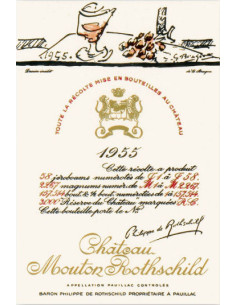 1955.
G. Braque
TOUTE LA RÉCOLTE MISE EN BOUTEILLES AU CHÂTEAU
1955
Cette récolte a produit
58 jéroboams numérotés de G.1 à G.58
2267 magnums numér. de M à M 2267
2000 Réserve du Château marquées R.C.
Cette bouteille porte le N.º
Philippe de Rothschild
Château
Mouton Rothschild
APPELLATION PAUILLAC CONTRÔLÉE
BARON PHILIPPE DE ROTHSCHILD PROPRIÉTAIRE A PAUILLAC